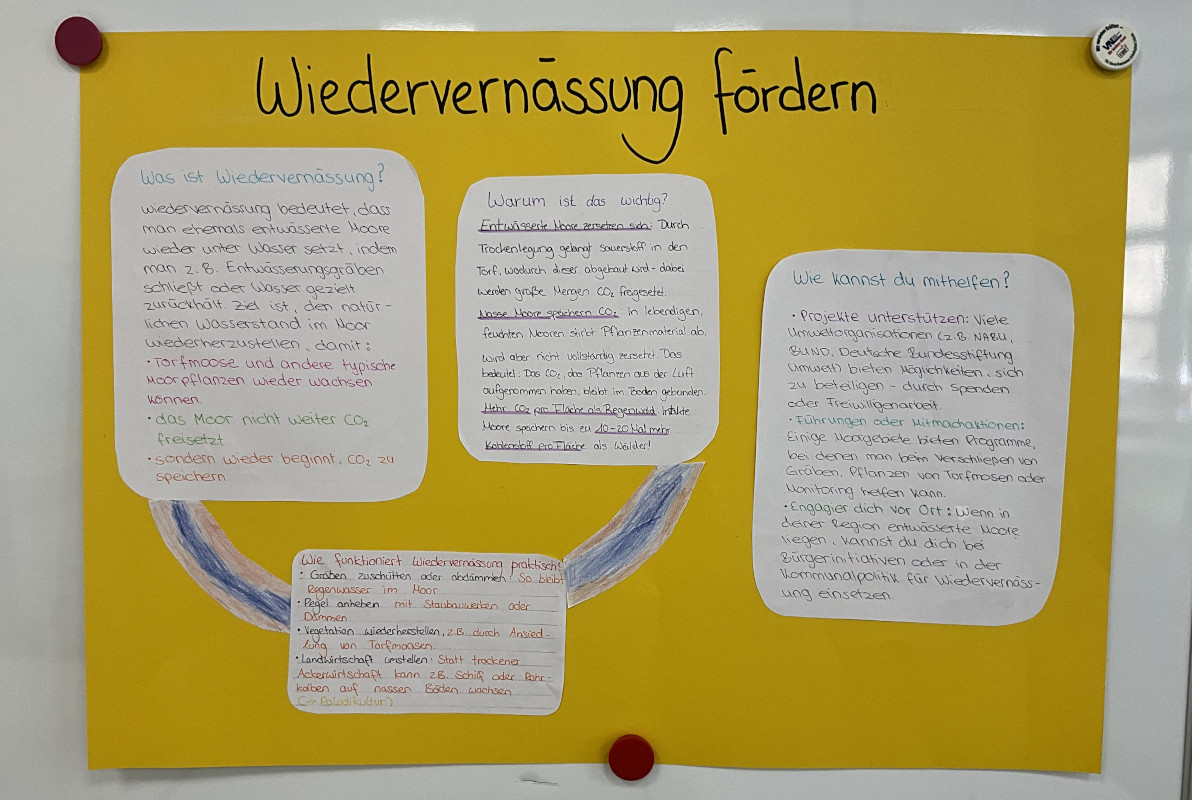 Wiedervernässung fördern
Was ist Wiedervernässung?
Wiedervernässung bedeutet, dass
man ehemals entwässerte Moore
wieder unter Wasser setzt, indem
man z.B. Entwässerungsgräben
schließt oder Wasser gezielt
zurückhält. Ziel ist, den natür-
lichen Wasserstand im Moor
wiederherzustellen, damit:
• Torfmoose und andere typische
Moorpflanzen wieder wachsen
können.
• das Moor nicht weiter CO₂
freisetzt
• sondern wieder beginnt, CO₂ zu
speichern
Warum ist das wichtig?
Entwässerte Moore zersetzen sich: Durch
Trockenlegung gelangt sauerstoff in den
Torf, wodurch dieser abgebaut wird - dabei
werden große Mengen CO₂ freigesetzt.
Nasse Moore speichern CO₂: In lebendigen,
feuchten Mooren stirbt Pflanzenmaterial ab,
wird aber nicht vollständig zersetzt. Das
bedeutet: Das CO₂, das Pflanzen aus der Luft
aufgenommen haben, bleibt im Boden gebunden.
Mehr CO₂ pro Fläche als Regenwald: Intakte
Moore speichern bis zu 10-20 Mal mehr
Kohlenstoff pro Fläche als Wälder!
Wie funktioniert Wiedervernässung praktisch?
• Gräben zuschütten oder abdämmen: So bleibt
Regenwasser im Moor
• Pegel anheben mit Staubauwerken oder
Dämmen
• Vegetation wiederherstellen, z.B. durch Ansied-
lung von Torfmoosen.
• Landwirtschaft umstellen: Statt trockener
Ackerwirtschaft kann z.B. Schilf oder Rohr-
kolben auf nassen Böden wachsen
(-> Paludikultur)
Wie kannst du mithelfen?
• Projekte unterstützen: Viele
Umweltorganisationen (z.B. NABU,
BUND, Deutsche Bundesstiftung
Umwelt) bieten Möglichkeiten, sich
zu beteiligen - durch Spenden
oder Freiwilligenarbeit.
• Führungen oder Mitmachaktionen:
Einige Moorgebiete bieten Programme,
bei denen man beim Verschließen von
Gräben, Pflanzen von Torfmosen oder
Monitoring helfen kann.
• Engagier dich vor Ort: Wenn in
deiner Region entwässerte Moore
liegen, kannst du dich bei
Bürgerinitiativen oder in der
Kommunalpolitik für Wiedervernäss-
ung einsetzen.